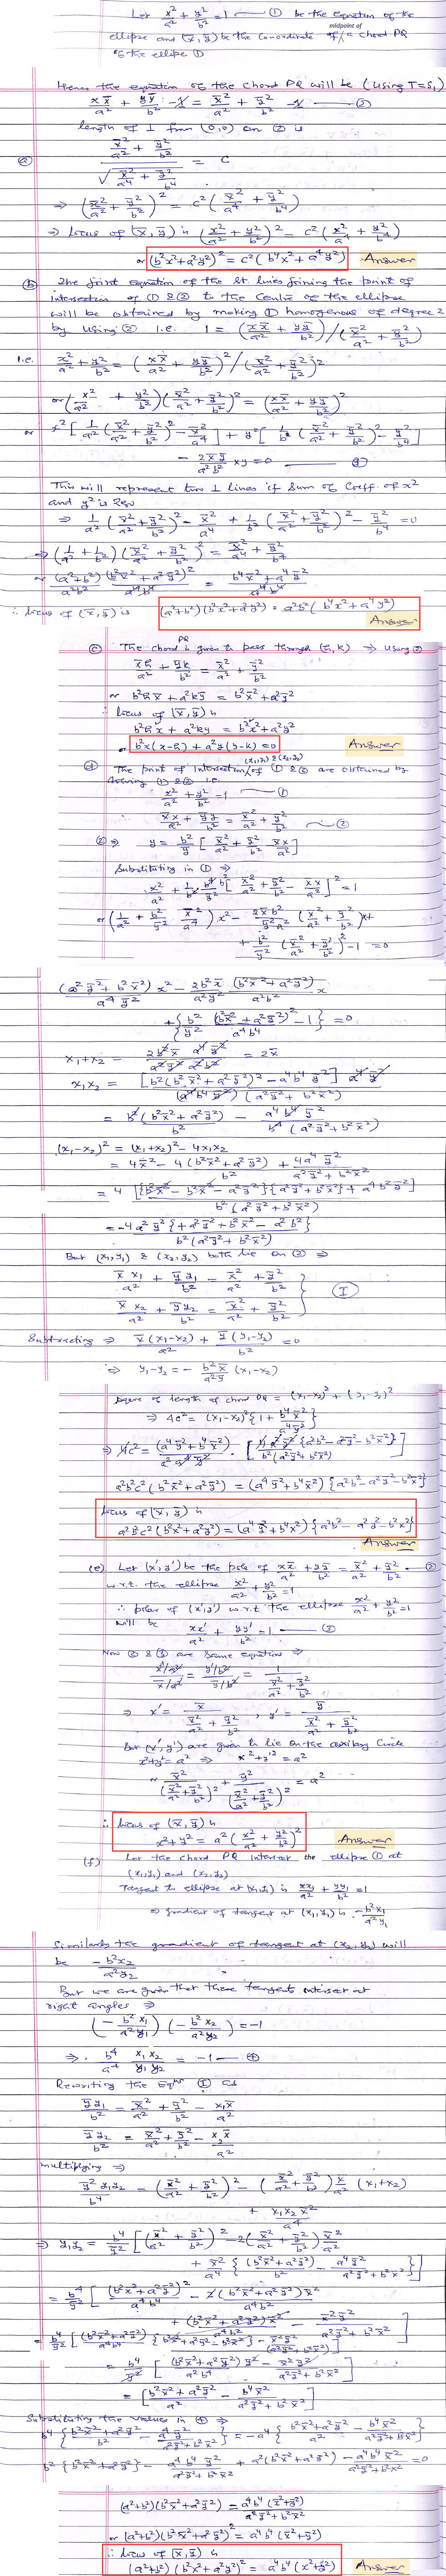 Let x²/a² + y²/b² = 1 — ① be the equation of the
ellipse and (x̄, ȳ) be the co-ordinate of midpoint of a chord PQ
of the ellipse ①
Hence the equation of the chord PQ will be (using T=S₁)
x x̄/a² + y ȳ/b² - 1 = x̄²/a² + ȳ²/b² - 1 — ②
length of ⊥ from (0,0) on ② is
(a) (x̄²/a² + ȳ²/b²) / √(x̄²/a⁴ + ȳ²/b⁴) = c
⇒ (x̄²/a² + ȳ²/b²)² = c² (x̄²/a⁴ + ȳ²/b⁴)
⇒ locus of (x̄, ȳ) is (x²/a² + y²/b²)² = c² (x²/a⁴ + y²/b⁴)
or (b²x² + a²y²)² = c² (b⁴x² + a⁴y²) Answer
(b) The joint equation of the st lines joining the point of
intersection of ① & ② to the centre of the ellipse
will be obtained by making ① homogenous of degree 2
by using ② i.e. 1 = (x x̄/a² + y ȳ/b²) / (x̄²/a² + ȳ²/b²)
i.e. x²/a² + y²/b² = (x x̄/a² + y ȳ/b²)² / (x̄²/a² + ȳ²/b²)²
or (x²/a² + y²/b²) (x̄²/a² + ȳ²/b²)² = (x x̄/a² + y ȳ/b²)²
or x² [1/a² (x̄²/a² + ȳ²/b²)² - x̄²/a⁴] + y² [1/b² (x̄²/a² + ȳ²/b²)² - ȳ²/b⁴]
- 2 x̄ ȳ/a²b² xy = 0 — ③
This will represent two ⊥ lines if sum of coeff. of x²
and y² is zero
⇒ 1/a² (x̄²/a² + ȳ²/b²)² - x̄²/a⁴ + 1/b² (x̄²/a² + ȳ²/b²)² - ȳ²/b⁴ = 0
⇒ (1/a² + 1/b²) (x̄²/a² + ȳ²/b²)² = x̄²/a⁴ + ȳ²/b⁴
or (a²+b²)/a²b² (b²x̄² + a²ȳ²)²/a⁴b⁴ = (b⁴x̄² + a⁴ȳ²)/a⁴b⁴
∴ locus of (x̄, ȳ) is (a²+b²)(b²x² + a²y²)² = a²b² (b⁴x² + a⁴y²)
Answer
(c) The chord PQ is given to pass through (h, k) ⇒ using ②
x̄h/a² + ȳk/b² = x̄²/a² + ȳ²/b²
or b²h x̄ + a²k ȳ = b²x̄² + a²ȳ²
∴ locus of (x̄, ȳ) is
b²hx + a²ky = b²x² + a²y²
or b²x(x-h) + a²y(y-k) = 0 Answer
(d) The point of intersection (x₁,y₁) & (x₂,y₂) of ① & ② are obtained by
solving ① & ② i.e.
x²/a² + y²/b² = 1 — ①
x x̄/a² + y ȳ/b² = x̄²/a² + ȳ²/b² — ②
② ⇒ y = b²/ȳ [x̄²/a² + ȳ²/b² - x x̄/a²]
Substituting in ① ⇒
x²/a² + 1/b² b⁴/ȳ² [x̄²/a² + ȳ²/b² - x x̄/a²]² = 1
or (1/a² + b²/ȳ² x̄²/a⁴) x² - 2x̄b²/ȳ²a² (x̄²/a² + ȳ²/b²) x +
+ b²/ȳ² (x̄²/a² + ȳ²/b²)² - 1 = 0
(a²ȳ² + b²x̄²)/a⁴ȳ² x² - 2b²x̄/a²ȳ² (b²x̄² + a²ȳ²)/a²b² x
+ {b²/ȳ² (b²x̄² + a²ȳ²)²/a⁴b⁴ - 1} = 0
x₁+x₂ = 2b²x̄ a⁴ȳ² / a²ȳ² a²b² = 2x̄
x₁x₂ = [b²(b²x̄² + a²ȳ²)² - a⁴b⁴ȳ²] a⁴ȳ² / (a⁴b⁴ȳ²)(a²ȳ² + b²x̄²)
= b²(b²x̄² + a²ȳ²)/b² - a⁴b⁴ȳ² / b⁴(a²ȳ² + b²x̄²)
(x₁-x₂)² = (x₁+x₂)² - 4x₁x₂
= 4x̄² - 4(b²x̄² + a²ȳ²)/b² + 4a⁴ȳ²/(a²ȳ² + b²x̄²)
= 4 [{b²x̄² - b²x̄² - a²ȳ²}{a²ȳ² + b²x̄²} + a⁴b²ȳ²] / b²(a²ȳ² + b²x̄²)
= -4a²ȳ² {+a²ȳ² + b²x̄² - a²b²} / b²(a²ȳ² + b²x̄²)
But (x₁,y₁) & (x₂,y₂) both lie on ② ⇒
x̄x₁/a² + ȳy₁/b² = x̄²/a² + ȳ²/b²
x̄x₂/a² + ȳy₂/b² = x̄²/a² + ȳ²/b² } Ⓘ
Subtracting ⇒ x̄(x₁-x₂)/a² + ȳ(y₁-y₂)/b² = 0
⇒ y₁-y₂ = - b²x̄/a²ȳ (x₁-x₂)
square of length of chord PQ = (x₁-x₂)² + (y₁-y₂)²
⇒ 4c² = (x₁-x₂)² {1 + b⁴x̄²/a⁴ȳ²}
⇒ 4c² = (a⁴ȳ² + b⁴x̄²)/a⁴ȳ² · [4a²ȳ² {a²b² - a²ȳ² - b²x̄²} / b²(a²ȳ² + b²x̄²)]
a²b²c² (b²x̄² + a²ȳ²) = (a⁴ȳ² + b⁴x̄²) {a²b² - a²ȳ² - b²x̄²}
locus of (x̄, ȳ) is
a²b²c² (b²x² + a²y²) = (a⁴y² + b⁴x²) {a²b² - a²y² - b²x²}
Answer
(e) Let (x',y') be the pole of x x̄/a² + y ȳ/b² = x̄²/a² + ȳ²/b² — ②
w.r.t. the ellipse x²/a² + y²/b² = 1
∴ polar of (x',y') w.r.t the ellipse x²/a² + y²/b² = 1
will be xx'/a² + yy'/b² = 1 — ③
Now ② & ③ are same equation ⇒
(x'/a²)/(x̄/a²) = (y'/b²)/(ȳ/b²) = 1/(x̄²/a² + ȳ²/b²)
⇒ x' = x̄/(x̄²/a² + ȳ²/b²) , y' = ȳ/(x̄²/a² + ȳ²/b²)
But (x',y') are given to lie on the auxiliary circle
x²+y² = a² ⇒ x'²+y'² = a²
~ x̄²/(x̄²/a² + ȳ²/b²)² + ȳ²/(x̄²/a² + ȳ²/b²)² = a²
∴ locus of (x̄, ȳ) is
x²+y² = a² (x²/a² + y²/b²)² Answer
(f) Let the chord PQ intersect the ellipse ① at
(x₁,y₁) and (x₂,y₂)
Tangent to ellipse at (x₁,y₁) is xx₁/a² + yy₁/b² = 1
⇒ gradient of tangent at (x₁,y₁) is - b²x₁/a²y₁
Similarly the gradient of tangent at (x₂,y₂) will
be - b²x₂/a²y₂
But we are given that these tangents intersect at
right angles ⇒
(- b²x₁/a²y₁)(- b²x₂/a²y₂) = -1
⇒ b⁴/a⁴ x₁x₂/y₁y₂ = -1 — ④
Rewriting the Eqns Ⓘ as
ȳy₁/b² = x̄²/a² + ȳ²/b² - x₁x̄/a²
ȳy₂/b² = x̄²/a² + ȳ²/b² - x₂x̄/a²
multiplying ⇒
ȳ²y₁y₂/b⁴ = (x̄²/a² + ȳ²/b²)² - (x̄²/a² + ȳ²/b²) x̄/a² (x₁+x₂)
+ x₁x₂x̄²/a⁴
⇒ y₁y₂ = b⁴/ȳ² [(x̄²/a² + ȳ²/b²)² - 2(x̄²/a² + ȳ²/b²) x̄²/a²
+ x̄²/a⁴ {(b²x̄² + a²ȳ²)/b² - a⁴ȳ²/(a²ȳ² + b²x̄²)}]
= b⁴/ȳ² [(b²x̄² + a²ȳ²)²/a⁴b⁴ - 2(b²x̄² + a²ȳ²)x̄²/a⁴b²
+ (b²x̄² + a²ȳ²)x̄²/a⁴b² - x̄²ȳ²/(a²ȳ² + b²x̄²)]
= b⁴/ȳ² [(b²x̄² + a²ȳ²)/a⁴b⁴ {b²x̄² + a²ȳ² - b²x̄²} - x̄²ȳ²/(a²ȳ² + b²x̄²)]
= b⁴/ȳ² [(b²x̄² + a²ȳ²)ȳ²/a²b⁴ - x̄²ȳ²/(a²ȳ² + b²x̄²)]
= [(b²x̄² + a²ȳ²)/a² - b⁴x̄²/(a²ȳ² + b²x̄²)]
Substituting the values in ④ ⇒
b⁴ {(b²x̄² + a²ȳ²)/b² - a⁴ȳ²/(a²ȳ² + b²x̄²)} = -a⁴ {(b²x̄² + a²ȳ²)/a² - b⁴x̄²/(a²ȳ² + b²x̄²)}
b² {b²x̄² + a²ȳ²} - a⁴b⁴ȳ²/(a²ȳ² + b²x̄²) + a²(b²x̄² + a²ȳ²) - a⁴b⁴x̄²/(a²ȳ² + b²x̄²) = 0
(a²+b²)(b²x̄² + a²ȳ²) = a⁴b⁴(x̄²+ȳ²)/(a²ȳ² + b²x̄²)
or (a²+b²)(b²x̄² + a²ȳ²)² = a⁴b⁴(x̄²+ȳ²)
∴ locus of (x̄, ȳ) is
(a²+b²)(b²x² + a²y²)² = a⁴b⁴(x²+y²) Answer